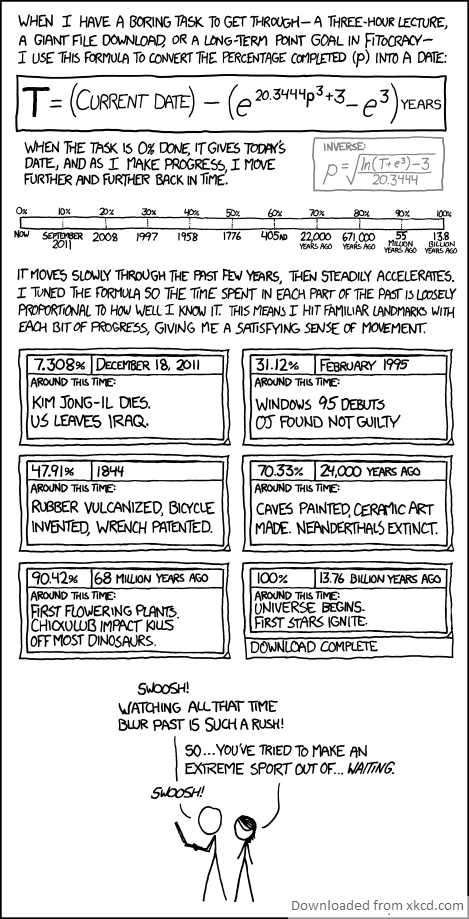 WHEN I HAVE A BORING TASK TO GET THROUGH—A THREE-HOUR LECTURE,
A GIANT FILE DOWNLOAD, OR A LONG-TERM POINT GOAL IN FITOCRACY—
I USE THIS FORMULA TO CONVERT THE PERCENTAGE COMPLETED (P) INTO A DATE:
T = (CURRENT DATE) − (e^(20.3444p³+3) − e³) YEARS
WHEN THE TASK IS 0% DONE, IT GIVES TODAY'S
DATE, AND AS I MAKE PROGRESS, I MOVE
FURTHER AND FURTHER BACK IN TIME.
INVERSE:
p = ∛((ln(T+e³)−3)/20.3444)
0% 10% 20% 30% 40% 50% 60% 70% 80% 90% 100%
NOW SEPTEMBER 2011 2008 1997 1958 1776 405AD 22,000 YEARS AGO 671,000 YEARS AGO 55 MILLION YEARS AGO 13.8 BILLION YEARS AGO
IT MOVES SLOWLY THROUGH THE PAST FEW YEARS, THEN STEADILY ACCELERATES.
I TUNED THE FORMULA SO THE TIME SPENT IN EACH PART OF THE PAST IS LOOSELY
PROPORTIONAL TO HOW WELL I KNOW IT. THIS MEANS I HIT FAMILIAR LANDMARKS WITH
EACH BIT OF PROGRESS, GIVING ME A SATISFYING SENSE OF MOVEMENT.
7.308% DECEMBER 18, 2011
AROUND THIS TIME:
KIM JONG-IL DIES.
US LEAVES IRAQ.
31.12% FEBRUARY 1995
AROUND THIS TIME:
WINDOWS 95 DEBUTS
OJ FOUND NOT GUILTY
47.91% 1844
AROUND THIS TIME:
RUBBER VULCANIZED, BICYCLE
INVENTED, WRENCH PATENTED.
70.33% 24,000 YEARS AGO
AROUND THIS TIME:
CAVES PAINTED, CERAMIC ART
MADE. NEANDERTHALS EXTINCT.
90.42% 68 MILLION YEARS AGO
AROUND THIS TIME:
FIRST FLOWERING PLANTS.
CHIXULUB IMPACT KILLS
OFF MOST DINOSAURS.
100% 13.76 BILLION YEARS AGO
AROUND THIS TIME:
UNIVERSE BEGINS.
FIRST STARS IGNITE.
DOWNLOAD COMPLETE
SWOOSH!
WATCHING ALL THAT TIME
BLUR PAST IS SUCH A RUSH!
SO...YOU'VE TRIED TO MAKE AN
EXTREME SPORT OUT OF... WAITING.
SWOOSH!
Downloaded from xkcd.com